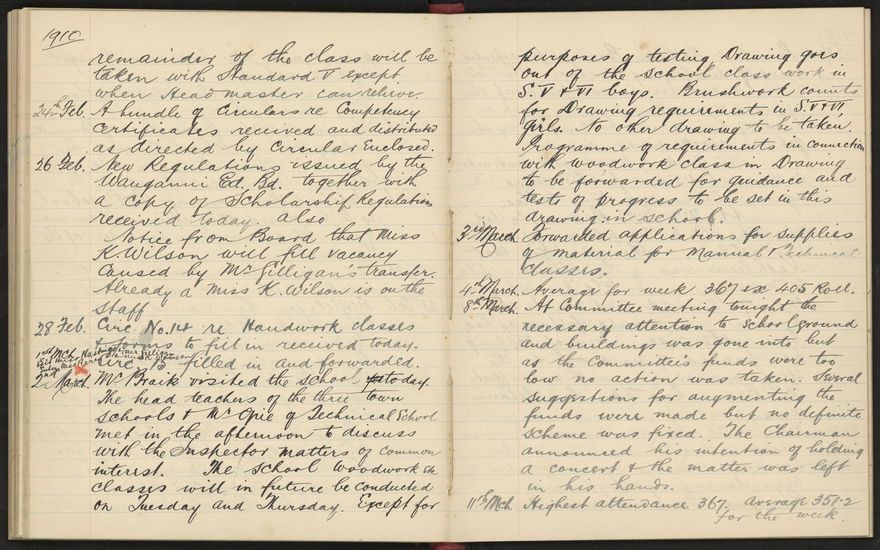 1910
remainder of the class will be
taken with Standard V except
when Head master can relieve.
24th Feb. A bundle of Circulars re Competency
Certificates received and distributed
as directed by Circular Enclosed.
26 Feb. New Regulations issued by the
Wanganui Ed. Bd. together with
a copy of Scholarship Regulations
received today. also
Notice from Board that Miss
K. Wilson will fill vacancy
caused by Mr Gilligan's transfer.
Already a Miss K. Wilson is on the
Staff
28 Feb. Circ No. 14 re Handwork classes
& forms to fill in received today.
1st Mch
Circ 15 filled in and forwarded.
2nd March. Mr Braik visited the school today.
The head teachers of the three town
schools & Mr Opie of Technical School
met in the afternoon to discuss
with the Inspector matters of common
interest. The school woodwork etc
classes will in future be conducted
on Tuesday and Thursday. Except for
purposes of testing, Drawing goes
out of the school class work in
S. V & VI boys. Brushwork counts
for Drawing requirements in S V & VI
girls. No other drawing to be taken.
Programme of requirements in connection
with woodwork class in Drawing
to be forwarded for guidance and
tests of progress to be set in this
drawing in school.
3rd March. Forwarded applications for supplies
of material for Manual & Technical
classes.
4th March. Average for week 367 ex 405 Roll.
8th March. At Committee meeting tonight the
necessary attention to School ground
and buildings was gone into but
as the Committee's funds were too
low no action was taken. Several
suggestions for augmenting the
funds were made but no definite
scheme was fixed. The Chairman
announced his intention of holding
a concert & the matter was left
in his hands.
11th Mch Highest attendance 367. average 351.2
for the week.